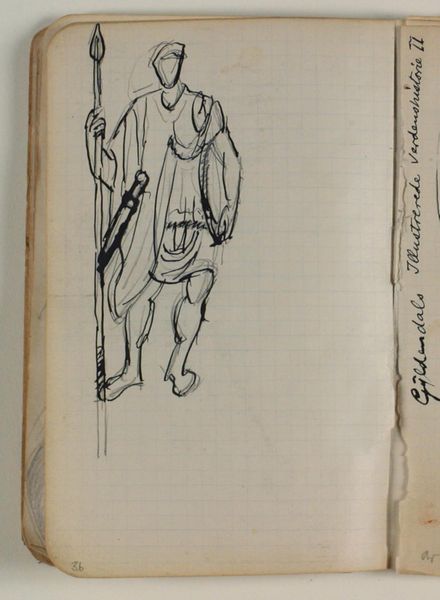 86
Gyldendals Illustrerede Verdenshistorie II